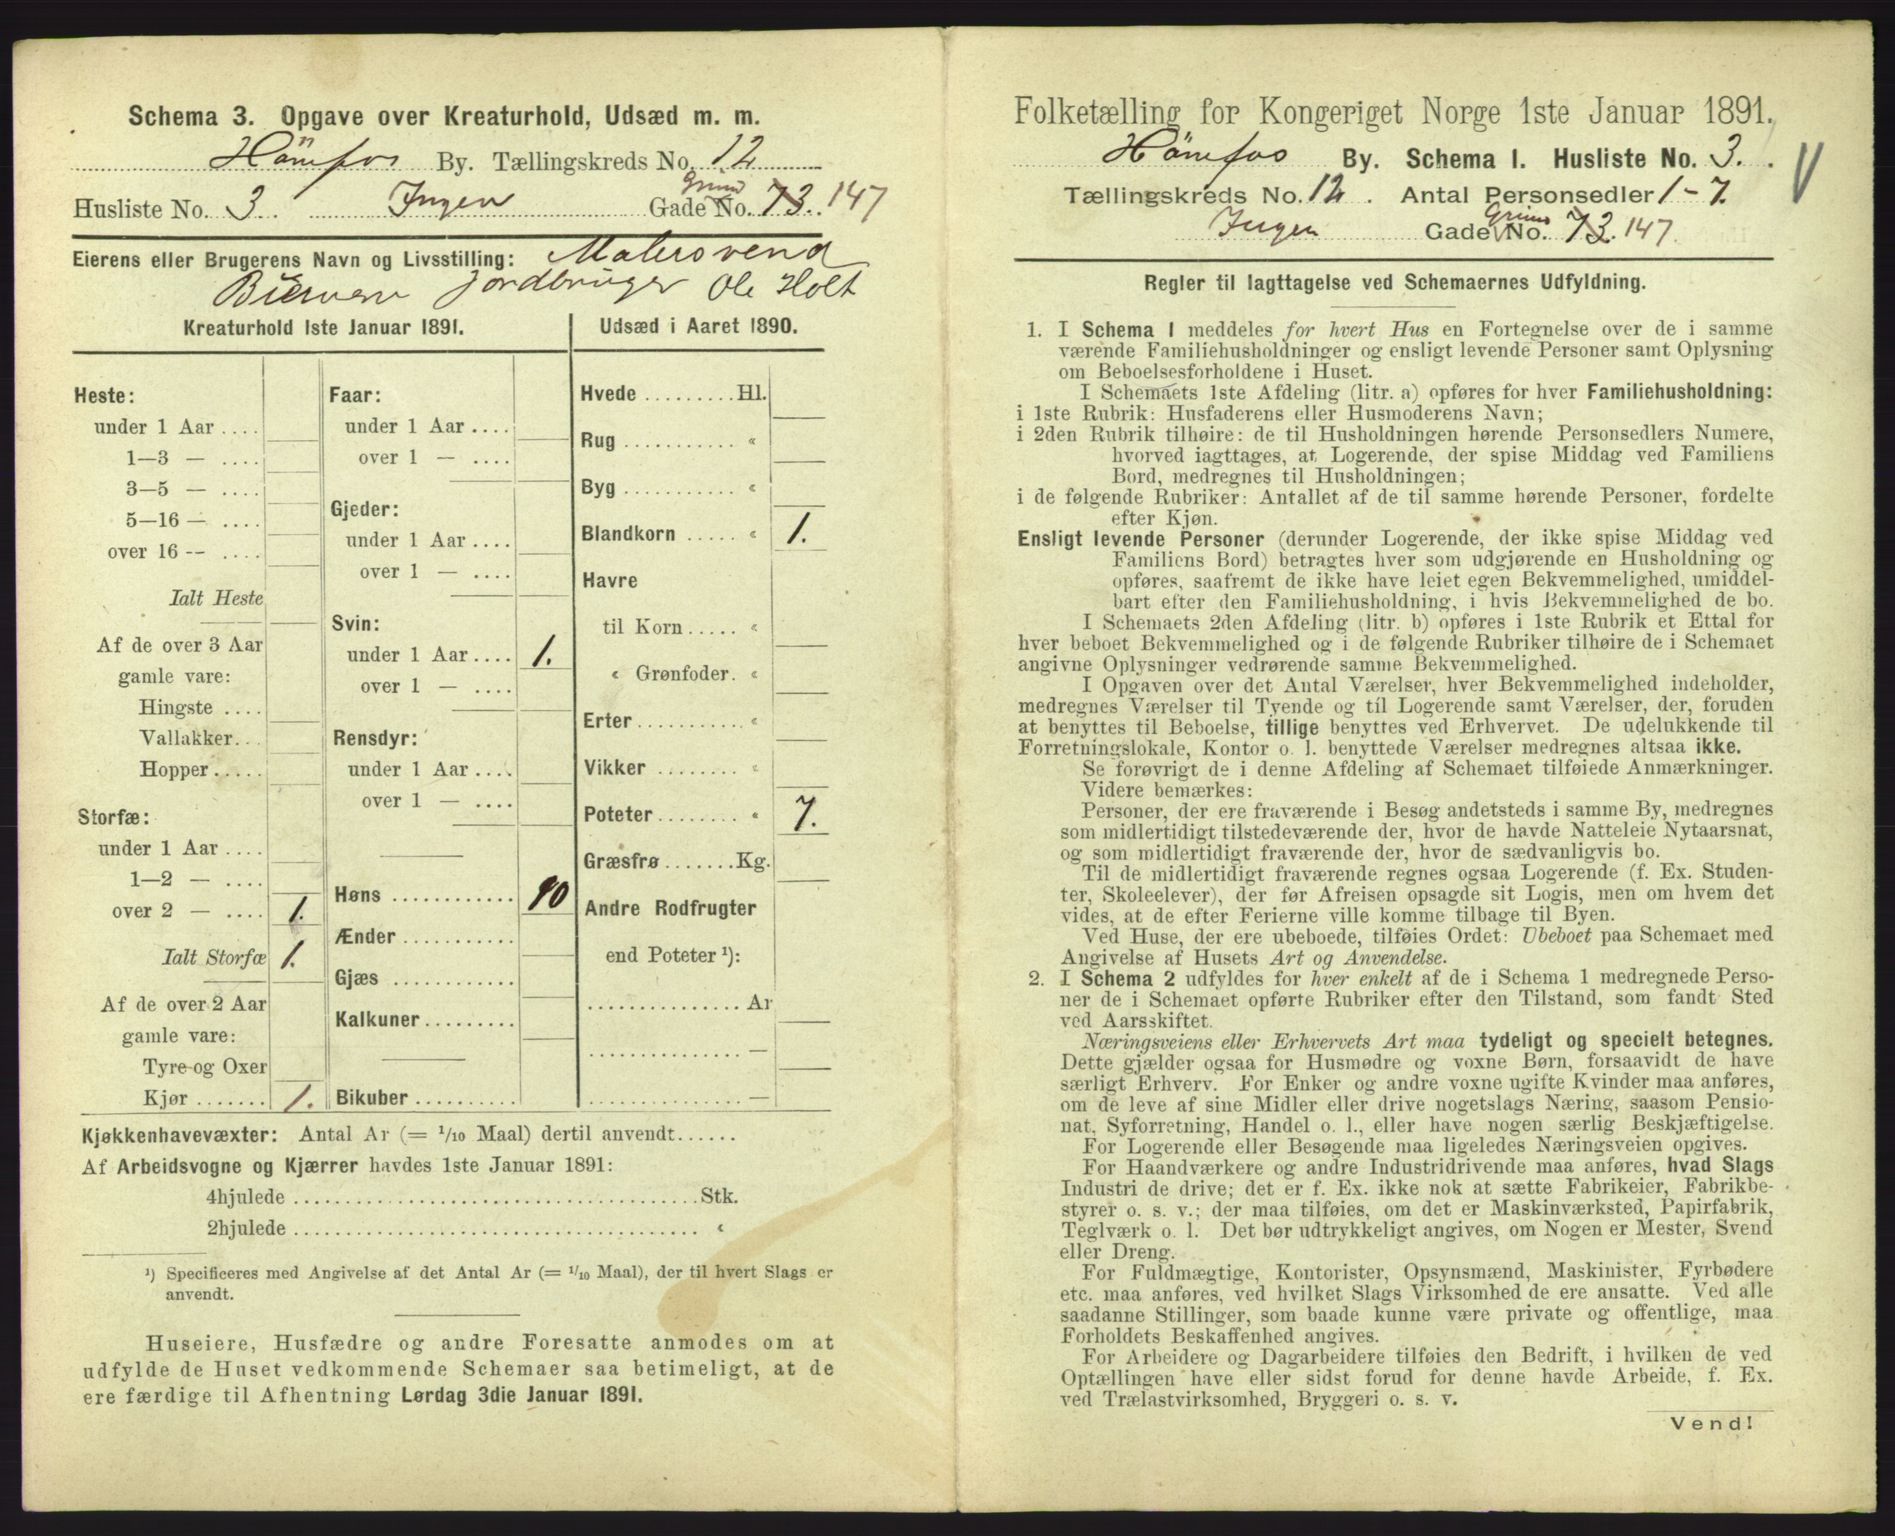 Schema 3. Opgave over Kreaturhold, Udsæd m. m.
Hönefos By. Tællingskreds No. 12
Husliste No. 3. Ingen Gade Grund No. 73. 147
Eierens eller Brugerens Navn og Livsstilling: Malersvend
Jordbruger Ole Holt
Kreaturhold 1ste Januar 1891.
Heste:
under 1 Aar ....
1—3 — ....
3—5 — ....
5—16 — ....
over 16 -- ....
Ialt Heste
Af de over 3 Aar
gamle vare:
Hingste ....
Vallakker...
Hopper.....
Storfæ:
under 1 Aar ....
1—2 — ....
over 2 — .... 1.
Ialt Storfæ 1.
Af de over 2 Aar
gamle vare:
Tyre og Oxer
Kjør ....... 1.
Faar:
under 1 Aar ....
over 1 — ....
Gjeder:
under 1 Aar ....
over 1 — ....
Svin:
under 1 Aar .... 1.
over 1 — ....
Rensdyr:
under 1 Aar ....
over 1 — ....
Høns ............ 10
Ænder ...........
Gjæs ............
Kalkuner.........
Bikuber..........
Udsæd i Aaret 1890.
Hvede .........Hl.
Rug ........... «
Byg ........... «
Blandkorn ..... « 1.
Havre
til Korn ..... «
« Grønfoder. «
Erter .......... «
Vikker ......... «
Poteter ........ « 7.
Græsfrø .......Kg.
Andre Rodfrugter
end Poteter ¹):
............... Ar
............... —
............... —
Kjøkkenhavevæxter: Antal Ar (= 1/10 Maal) dertil anvendt......
Af Arbeidsvogne og Kjærrer havdes 1ste Januar 1891:
4hjulede ........................................Stk.
2hjulede ........................................ «
¹) Specificeres med Angivelse af det Antal Ar (= 1/10 Maal), der til hvert Slags er
anvendt.
Huseiere, Husfædre og andre Foresatte anmodes om at
udfylde de Huset vedkommende Schemaer saa betimeligt, at de
ere færdige til Afhentning Lørdag 3die Januar 1891.
Folketælling for Kongeriget Norge 1ste Januar 1891.
Hönefos By. Schema I. Husliste No. 3.
Tællingskreds No. 12. Antal Personsedler 1-7.
Ingen Gade Grund No. 73. 147.
Regler til Iagttagelse ved Schemaernes Udfyldning.
1. I Schema I meddeles for hvert Hus en Fortegnelse over de i samme
værende Familiehusholdninger og ensligt levende Personer samt Oplysning
om Beboelsesforholdene i Huset.
I Schemaets 1ste Afdeling (litr. a) opføres for hver Familiehusholdning:
i 1ste Rubrik: Husfaderens eller Husmoderens Navn;
i 2den Rubrik tilhøire: de til Husholdningen hørende Personsedlers Numere,
hvorved iagttages, at Logerende, der spise Middag ved Familiens
Bord, medregnes til Husholdningen;
i de følgende Rubriker: Antallet af de til samme hørende Personer, fordelte
efter Kjøn.
Ensligt levende Personer (derunder Logerende, der ikke spise Middag ved
Familiens Bord) betragtes hver som udgjørende en Husholdning og
opføres, saafremt de ikke have leiet egen Bekvemmelighed, umiddel-
bart efter den Familiehusholdning, i hvis Bekvemmelighed de bo.
I Schemaets 2den Afdeling (litr. b) opføres i 1ste Rubrik et Ettal for
hver beboet Bekvemmelighed og i de følgende Rubriker tilhøire de i Schemaet
angivne Oplysninger vedrørende samme Bekvemmelighed.
I Opgaven over det Antal Værelser, hver Bekvemmelighed indeholder,
medregnes Værelser til Tyende og til Logerende samt Værelser, der, foruden
at benyttes til Beboelse, tillige benyttes ved Erhvervet. De udelukkende til
Forretningslokale, Kontor o. l. benyttede Værelser medregnes altsaa ikke.
Se forøvrigt de i denne Afdeling af Schemaet tilføiede Anmærkninger.
Videre bemærkes:
Personer, der ere fraværende i Besøg andetsteds i samme By, medregnes
som midlertidigt tilstedeværende der, hvor de havde Natteleie Nytaarsnat,
og som midlertidigt fraværende der, hvor de sædvanligvis bo.
Til de midlertidigt fraværende regnes ogsaa Logerende (f. Ex. Studen-
ter, Skoleelever), der før Afreisen opsagde sit Logis, men om hvem det
vides, at de efter Ferierne ville komme tilbage til Byen.
Ved Huse, der ere ubeboede, tilføies Ordet: Ubeboet paa Schemaet med
Angivelse af Husets Art og Anvendelse.
2. I Schema 2 udfyldes for hver enkelt af de i Schema 1 medregnede Perso-
ner de i Schemaet opførte Rubriker efter den Tilstand, som fandt Sted
ved Aarsskiftet.
Næringsveiens eller Erhvervets Art maa tydeligt og specielt betegnes.
Dette gjælder ogsaa for Husmødre og voxne Børn, forsaavidt de have
særligt Erhverv. For Enker og andre voxne ugifte Kvinder maa anføres,
om de leve af sine Midler eller drive nogetslags Næring, saasom Pensio-
nat, Syforretning, Handel o. l., eller have nogen særlig Beskjæftigelse.
For Logerende eller Besøgende maa ligeledes Næringsveien opgives.
For Haandværkere og andre Industridrivende maa anføres, hvad Slags
Industri de drive; det er f. Ex. ikke nok at sætte Fabrikeier, Fabrikbe-
styrer o. s. v.; der maa tilføies, om det er Maskinværksted, Papirfabrik,
Teglværk o. l. Det bør udtrykkeligt angives, om Nogen er Mester, Svend
eller Dreng.
For Fuldmægtige, Kontorister, Opsynsmænd, Maskinister, Fyrbødere
etc. maa anføres, ved hvilket Slags Virksomhed de ere ansatte. Ved alle
saadanne Stillinger, som baade kunne være private og offentlige, maa
Forholdets Beskaffenhed angives.
For Arbeidere og Dagarbeidere tilføies den Bedrift, i hvilken de ved
Optællingen have eller sidst forud for denne havde Arbeide, f. Ex.
ved Trælastvirksomhed, Bryggeri o. s. v.
Vend!